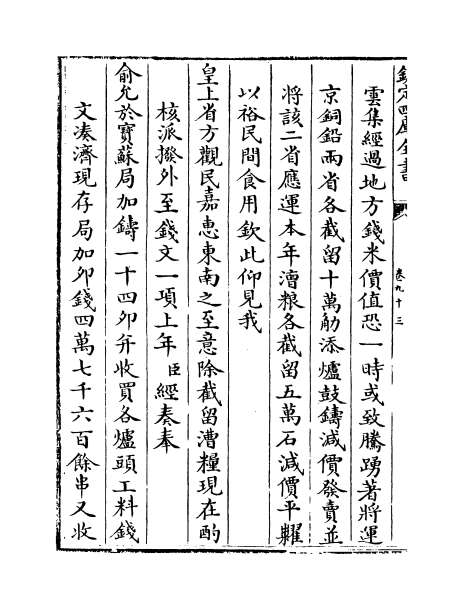 欽定四庫全書
卷九十三
雲集經過地方錢米價值恐一時或致騰踴著將運
京銅鉛兩省各截留十萬觔添爐鼓鑄減價發賣並
將該二省應運本年漕糧各截留五萬石減價平糶
以裕民間食用欽此仰見我
皇上省方觀民嘉惠東南之至意除截留漕糧現在酌
核派撥外至錢文一項上年臣經奏奉
俞允於寶蘇局加鑄一十四卯并收買各爐頭工料錢
文湊濟現存局加卯錢四萬七千六百餘串又收